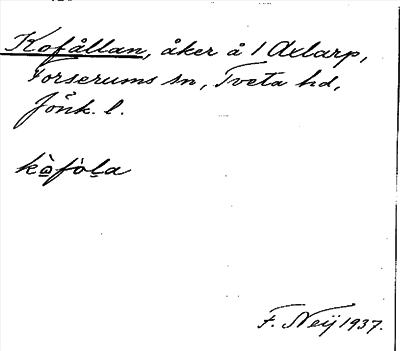 Kofållan, åker å 1 Axlarp,
Forserums sn, Tveta hd,
Jönk. l.
kò̲fòl̲a
F. Neij 1937.